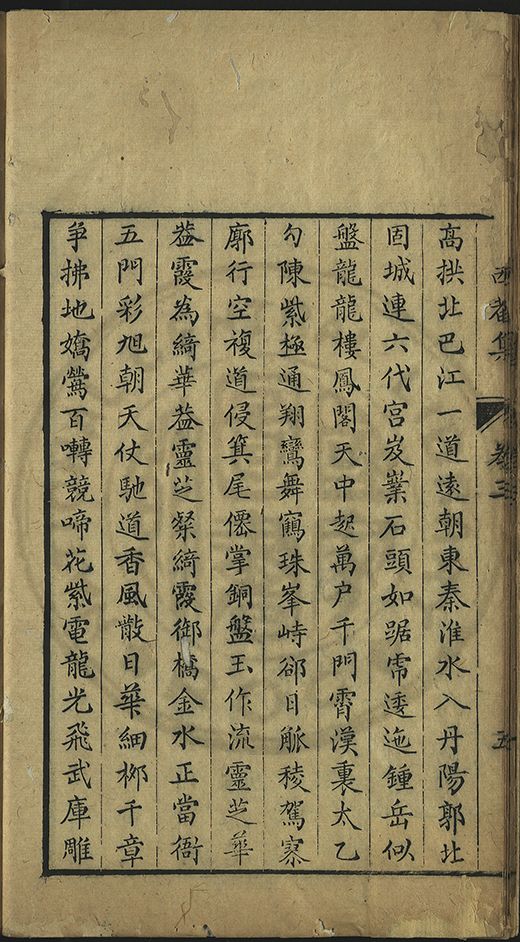 西菴集 卷三 五
高拱北巴江一道遠朝東秦淮水入丹陽郭北
固城連六代宮岌嶪石頭如踞虎逶迤鍾岳似
盤龍龍樓鳳閣天中起萬户千門霄漢裏太乙
勾陳紫極通翔鸞舞鶴珠峯峙郤日觚稜駕寥
廓行空複道侵箕尾僊掌銅盤玉作流靈芝華
葢霞為綺華葢靈芝粲綺霞御橋金水正當衙
五門彩旭朝天仗馳道香風散日華細栁千章
爭拂地嬌鶯百囀競啼花紫電龍光飛武庫雕